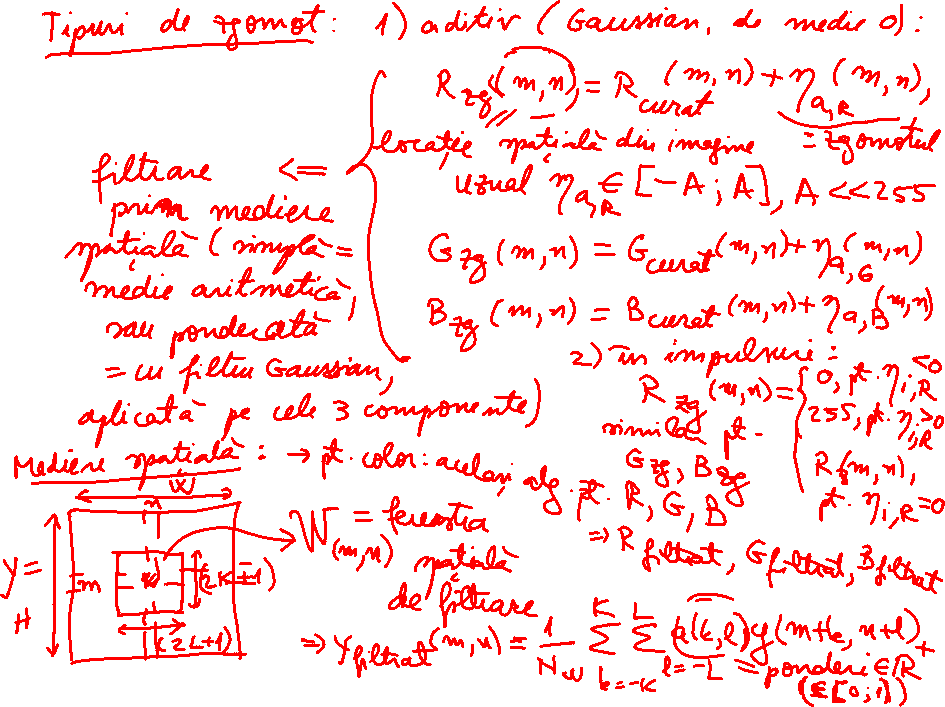 Tipuri de zgomot: 1) aditiv (Gaussian, de medie 0):
R_zg(m,n) = R_curat(m,n) + η_a,R(m,n),
locație spațială din imagine = zgomotul
uzual η_a,R ∈ [-A; A], A << 255
G_zg(m,n) = G_curat(m,n) + η_a,G(m,n)
B_zg(m,n) = B_curat(m,n) + η_a,B(m,n)
filtrare <=
prin mediere
spațială (simplă =
medie aritmetică,
sau ponderată
= cu filtru Gaussian,
aplicată pe cele 3 componente)
2) în impulsuri:
R_zg(m,n) = { 0, pt. η_i,R < 0
255, pt. η_i,R > 0
R(m,n),
pt. η_i,R = 0
similar pt.
G_zg, B_zg
Mediere spațială: → pt. color: același alg. pt. R, G, B
=> R_filtrat, G_filtrat, B_filtrat
W
n
Y =
H
m
(2K+1)
(2L+1)
W_(m,n) = fereastra
spațială
de filtrare
=> Y_filtrat(m,n) = 1/N_W ∑_{k=-K}^{K} ∑_{l=-L}^{L} a(k,l) y(m+k, n+l)
= ponderi ∈ R+
(∈ [0;1])